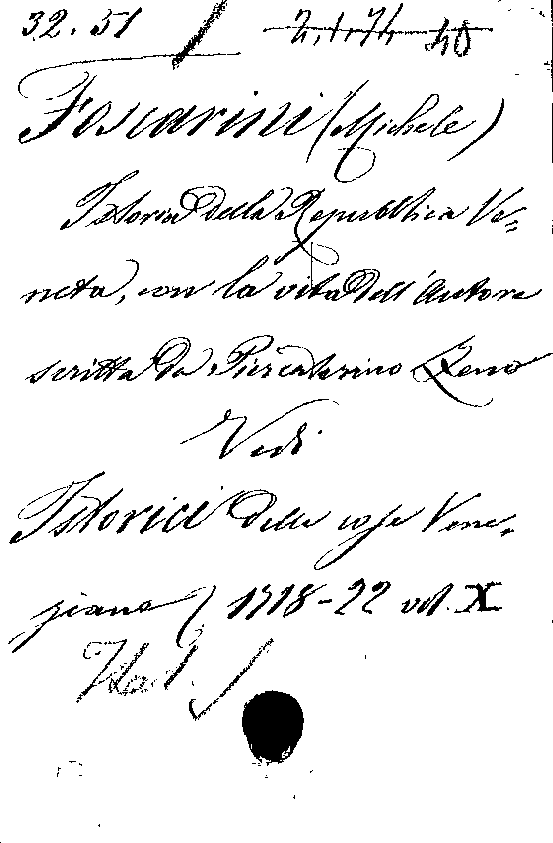 32. 51 / 2.1.74 40
Foscarini (Michele)
Istoria della Repubblica Ve=
neta, con la vita dell'Autore
scritta da Piercaterino Zeno
Vedi
Istorici delle cose Vene-
ziane) 1718-22 vol. X